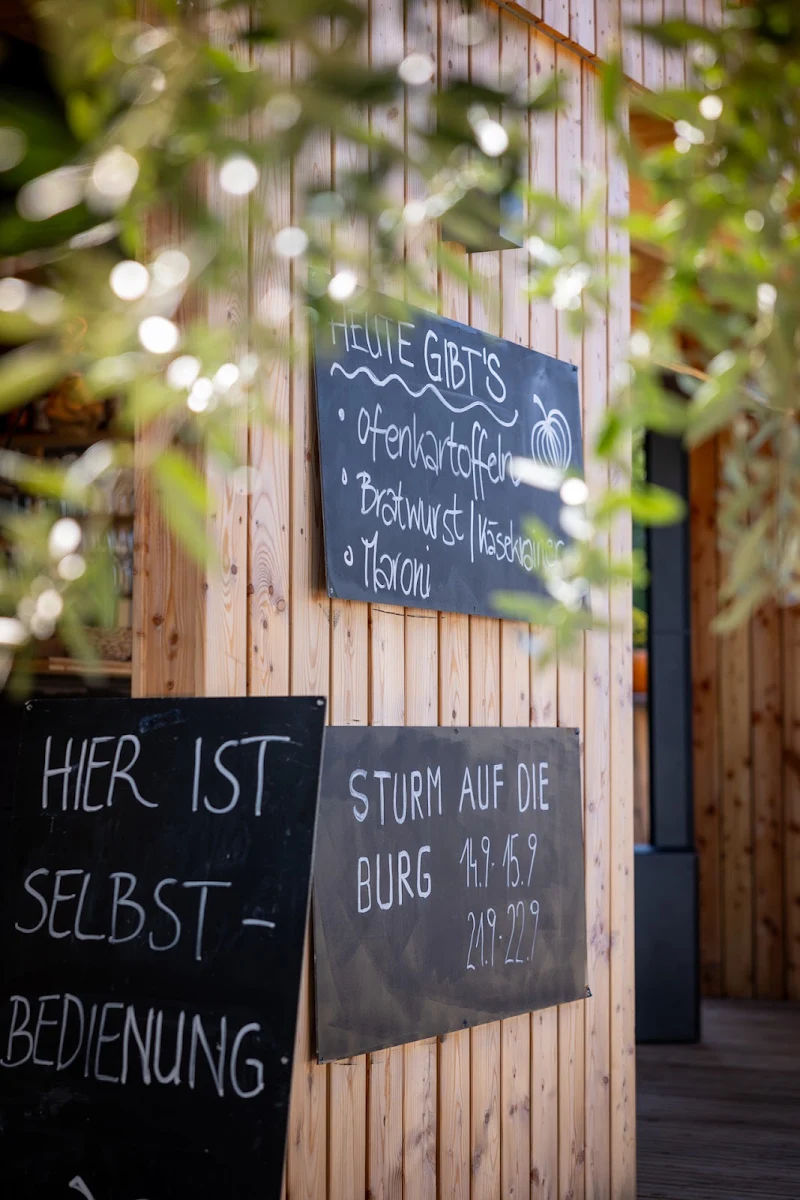 HEUTE GIBT'S
• Ofenkartoffeln
• Bratwurst | Käsekrainer
• Maroni
HIER IST
SELBST-
BEDIENUNG
STURM AUF DIE
BURG 14.9. 15.9
21.9. 22.9